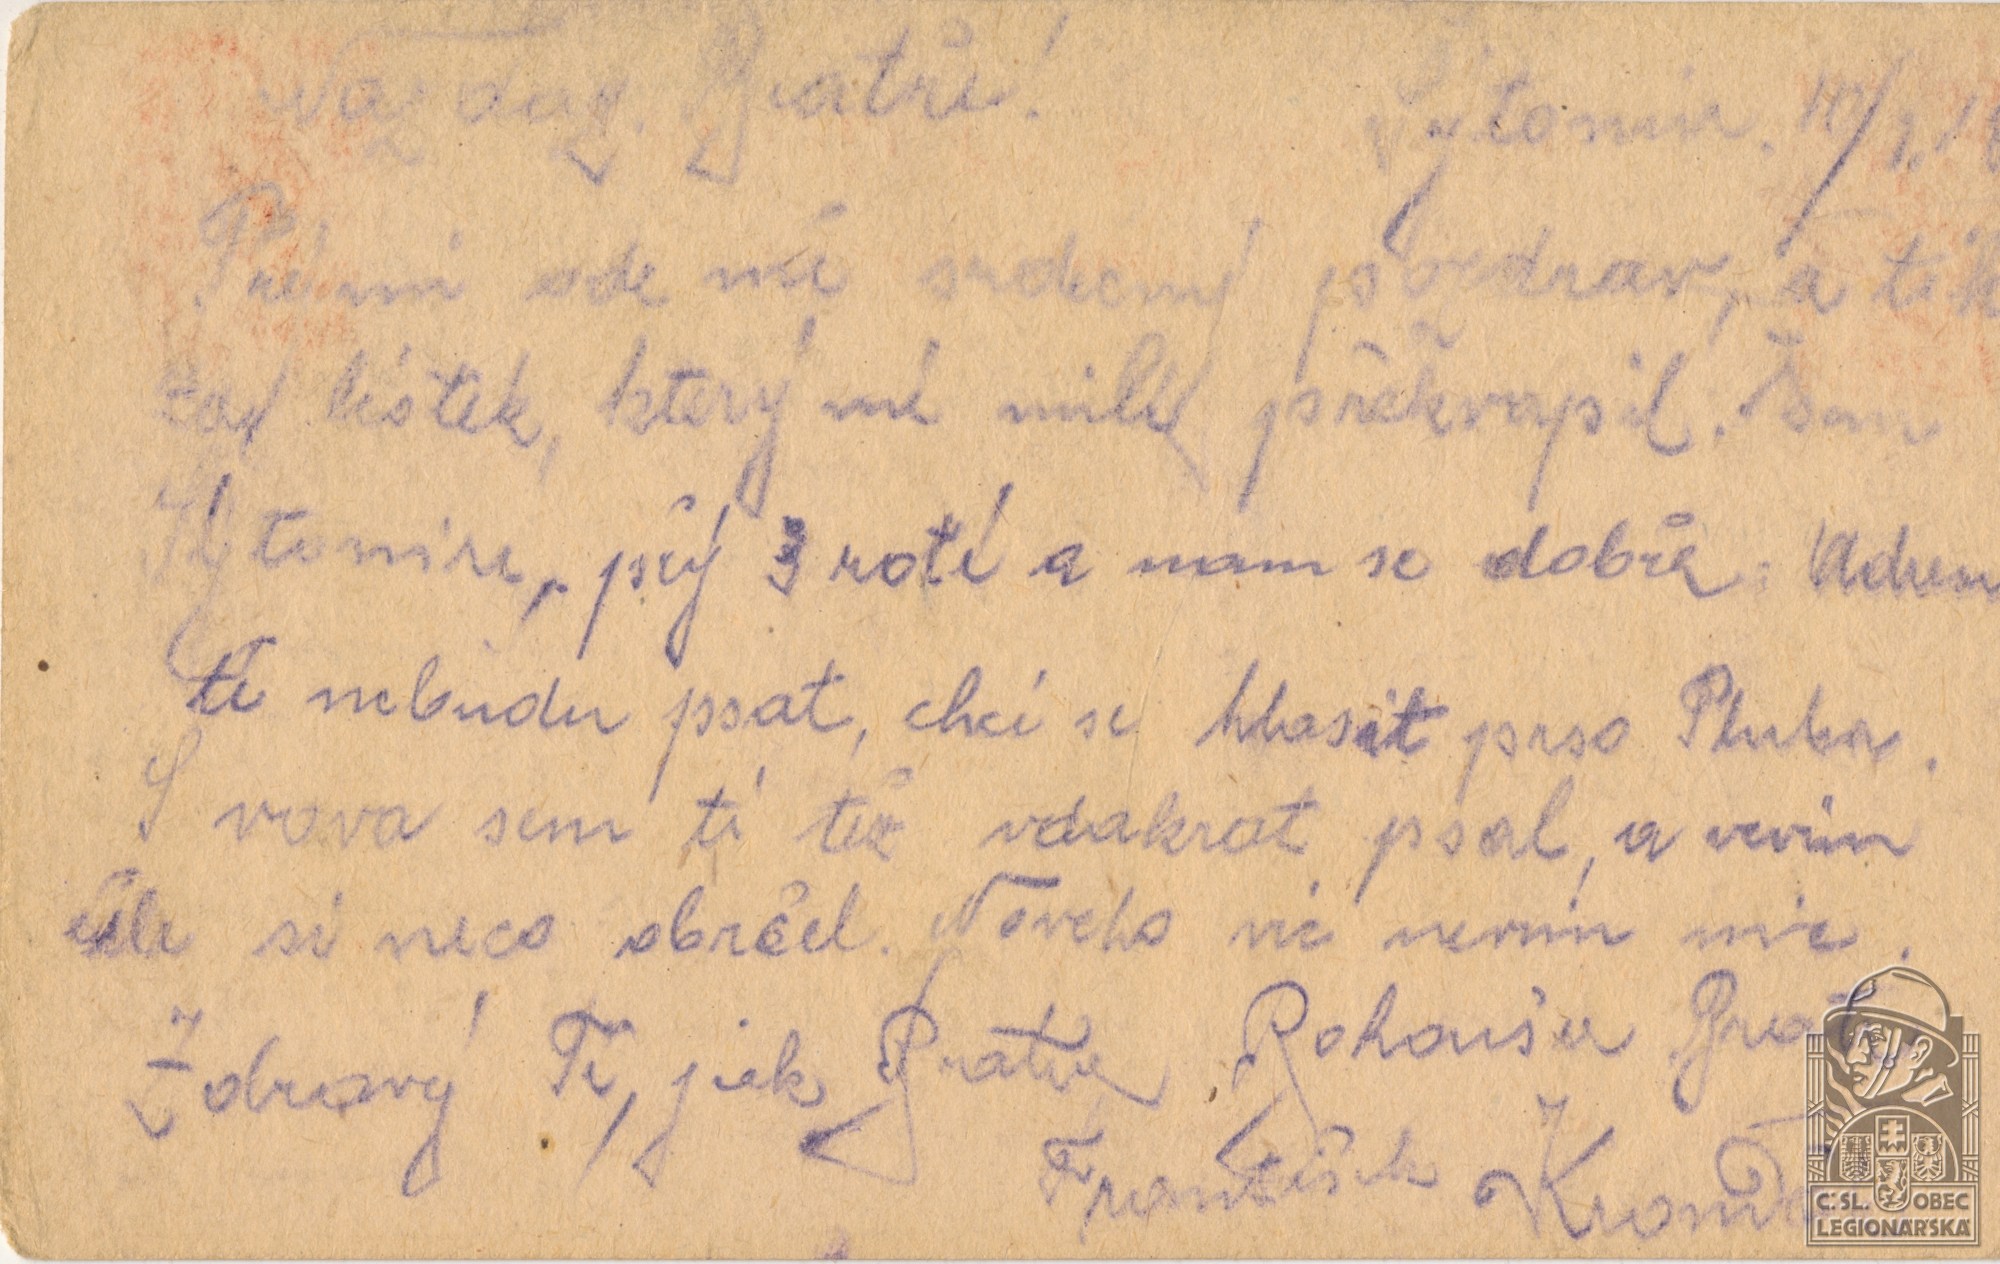 Nazdag. Bratře! Žytomir. 10/1. 1
Přijmi ode mě srdečný pozdrav, a dík
za lístek, který mě milě překvapil. Sem
Žytomire, pěy 3 rotě a mam se dobře. Adresu
ti nebudu psat, chci se hlasit prso Pluku.
S vova sem ti též vdakrat psal, a nevim
esle si neco obrčel. Noveho nic nevim nic.
Zdravý Tě, jiek Bratra Rohouša Brat
František Kromb
Č. SL. OBEC
LEGIONÁŘSKÁ